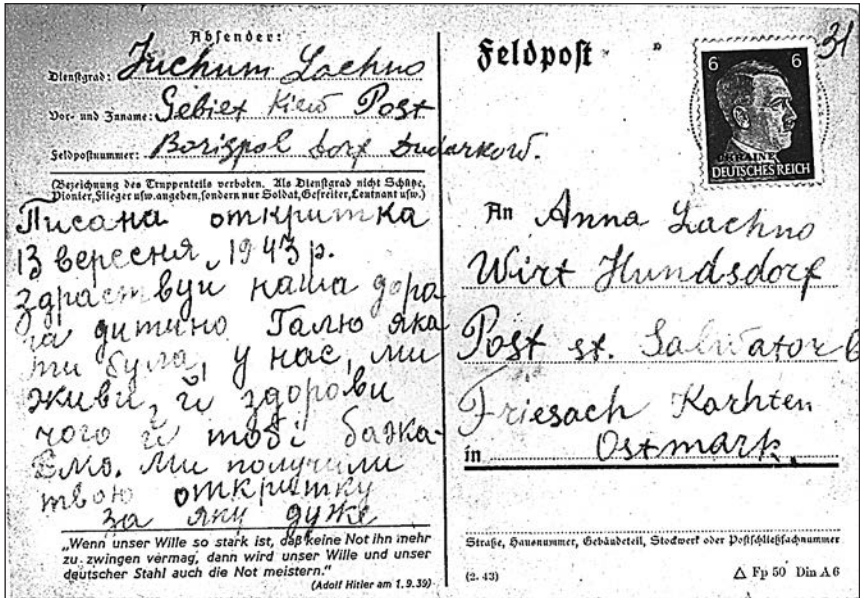 Absender:
Dienstgrad: Juchum Lachno
Vor- und Zuname: Gebiet Kiew Post
Feldpostnummer: Borispol dorf Dudarkow.
(Bezeichnung des Truppenteils verboten. Als Dienstgrad nicht Schütze,
Pionier, Flieger usw. angeben, sondern nur Soldat, Gefreiter, Leutnant usw.)
Писана откритка
13 вересня, 1943 р.
здраствуй наша доро
га дитино Галю яка
ти була, у нас, ми
живи, й здорови
чого й тобі бажа-
ємо. Ми получили
твою откритку
за яку дуже
„Wenn unser Wille so stark ist, daß keine Not ihn mehr
zu zwingen vermag, dann wird unser Wille und unser
deutscher Stahl auch die Not meistern."
(Adolf Hitler am 1.9.39)
Feldpost
31
6 6
UKRAINE
DEUTSCHES REICH
An Anna Lachno
Wirt Hundsdorf
Post st. Salvator
Friesach Karhten
in Ostmark.
Straße, Hausnummer, Gebäudeteil, Stockwerk oder Postschließfachnummer
(2. 43) △ Fp 50 Din A6